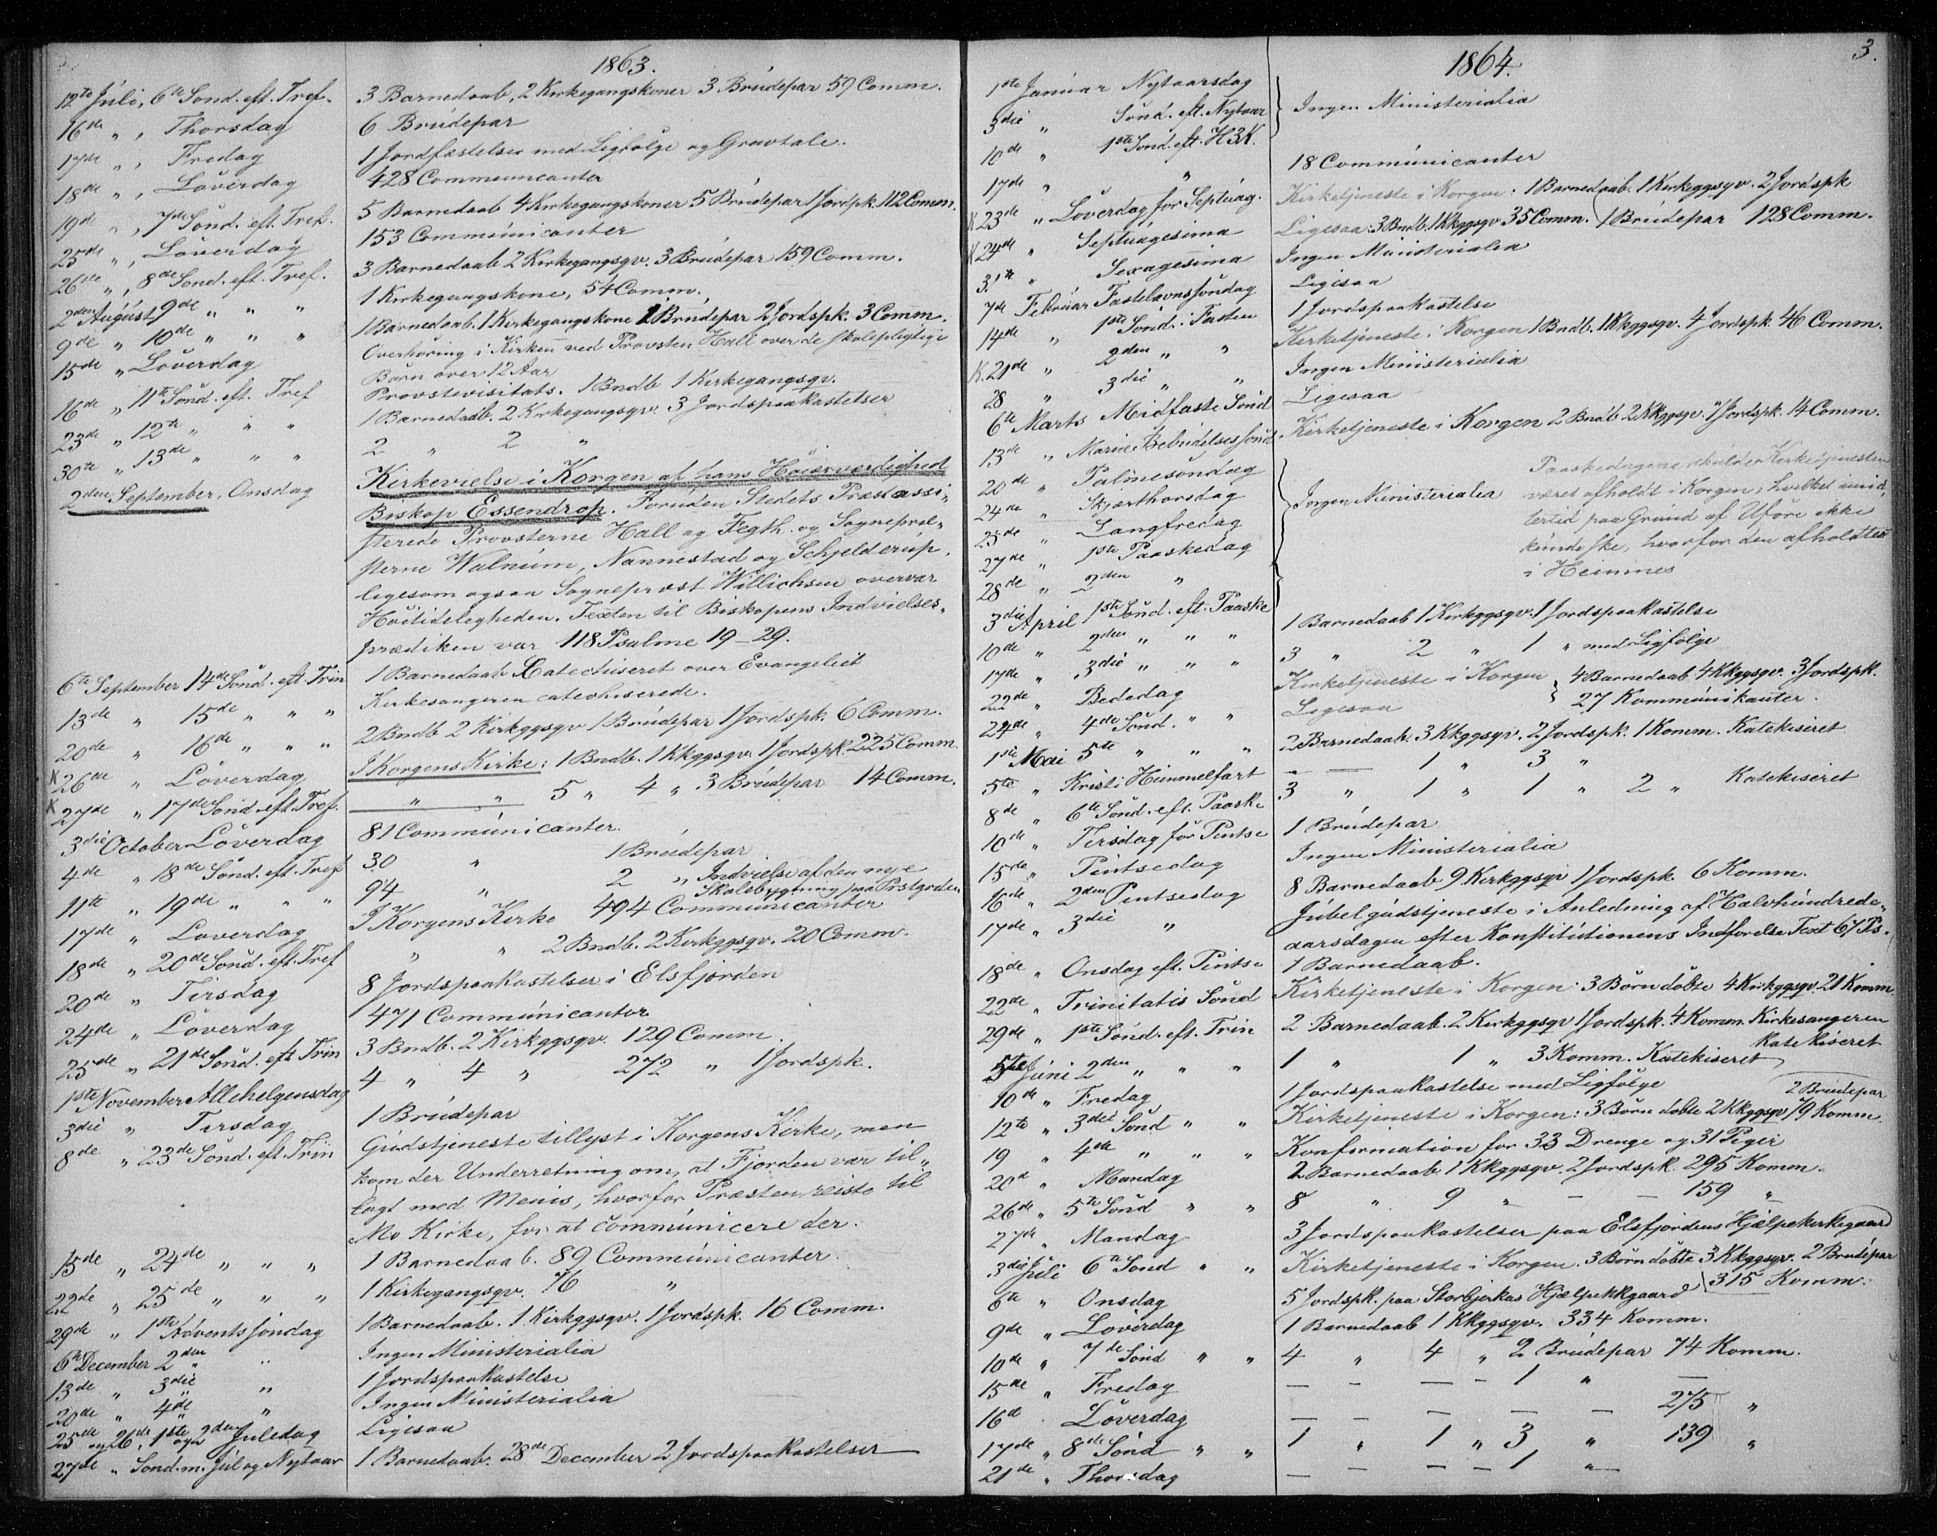 1863.
12te Juli, 6te Sönd. eft. Tref. 3 Barnedaab, 2 Kirkegangskoner 3 Brudepar 59 Comm.
16de „ , Thorsdag 6 Brudepar
17de „ , Fredag 1 Jordfæstelse med Ligfølge og Gravtale.
18de „ , Löverdag 428 Communicanter
19de „ , 7de Sönd. eft. Tref. 5 Barnedaab 4 Kirkegangskoner 5 Brudepar 1 Jordspk. 112 Comm.
25de „ , Löverdag 153 Communicanter
26de „ , 8de Sönd. eft. Tref. 3 Barnedaab 2 Kirkegangsqv. 3 Brudepar 159 Comm.
2den August 9de „ „ „ 1 Kirkegangskone, 54 Comm.
9de „ 10de „ „ „ 1 Barnedaab. 1 Kirkegangskone 1 Brudepar 2 Jordspk. 3 Comm.
15de „ Löverdag Overhöring i Kirken ved Provsten Hall over de skolepligtige
Börn over 12 Aar
16de „ 11te Sönd. eft. Tref Provstevisitats. 1 Bndb 1 Kirkegangsqv.
23de „ 12te „ „ „ 1 Barnedaab. 2 Kirkegangsqv. 3 Jordspaakastelser
30te „ 13de „ „ „ 2 „ 2 „
2den September, Onsdag Kirkevielse i Korgen af hans Höiærværdighed
Biskop Essendrop. Foruden Stedets Præst assi-
sterede Provsterne Hall og Fegth. og Sognepræ-
sterne Walnum, Nannestad og Schjelderup,
ligesom ogsaa Sognepræst Willichsen overvar
Höitideligheden. Texten til Biskopens Indvielses-
prædiken var 118 Psalme 19-29.
6te September 14de Sönd. eft. Trin 1 Barnedaab Catechiseret over Evangeliet
13de „ 15de „ „ „ Kirkesangeren catechiserede.
20de „ 16de „ „ „ 2 Bndb 2 Kirkggsqv 1 Brudepar 1 Jordspk. 6 Comm.
K 26de „ Löverdag I Korgens Kirke: 1 Bndb. 1 Kkggsqv. 1 Jordspk 225 Comm.
K 27de „ 17de Sönd. eft. Tref. „ „ 5 „ 4 „ 3 Brudepar 14 Comm.
3die October Löverdag 81 Communicanter.
4de „ 18de Sönd. eft. Tref 30 „ 1 Brudepar
11te „ 19de „ „ „ 94 „ 2 „ Indvielse af den nye
Skolebygning paa Prstgrden
17de „ Löverdag I Korgens Kirke 494 Communicanter
18de „ 20de Sönd. eft. Tref „ „ 2 Bndb. 2 Kirkggsqv. 20 Comm.
20de „ Tirsdag 8 Jordspaakastelser i Elsfjorden
24de „ Löverdag 471 Communicanter
25de „ 21de Sönd. eft Trin 3 Bndb. 2 Kirkggsqv. 129 Comm.
1ste November Allehelgensdag 4 „ 4 „ 272 „ 1 Jordspk.
3die „ Tirsdag 1 Brudepar
8de „ 23de Sönd. eft. Trin Gudstjeneste tillyst i Korgens Kirke, men
kom der Underretning om, at Fjorden var til-
lagt med Menis, hvorfor Præsten reiste til
Mo Kirke, for at communicere der.
15de „ 24de „ „ „ 1 Barnedaab. 89 Communicanter.
22de „ 25de „ „ „ 1 Kirkegangsqv. 76 „
29de „ 1ste Adventssöndag 1 Barnedaab. 1 Kirkggsqv. 1 Jordspk. 16 Comm.
6te December 2den „ „ Ingen Ministerialia
13de „ 3die „ 1 Jordspaakastelse
20de „ 4de „ Ingen Ministerialia
25de og 26de, 1ste og 2den Juledag Ligesaa
27de „ Sönd. m. Jul og Nytaar 1 Barnedaab. 28de December 2 Jordspaakastelser
3.
1864.
1ste Januar Nytaarsdag
3die „ Sönd. eft. Nytaar Ingen Ministerialia
10de „ 1ste Sönd. eft. H3K.
17de „ „ 18 Communicanter
K 23de „ Löverdag for Septuag. Kirketjeneste i Korgen. 1 Barnedaab. 1 Kirkggsqv. 2 Jordspk
K 24de „ Septuagesima Ligesaa: 3 Bndb. 1 Kkggsqv 35 Comm. 1 Brudepar 128 Comm.
31te „ Sexagesima Ingen Ministerialia
7de Februar Fastelavnssöndag Ligesaa
14de „ 1ste Sönd. i Fasten 1 Jordspaakastelse
K. 21de „ 2den „ „ Kirketjeneste i Korgen 1 Bndb. 1 Kkggsqv. 4 Jordspk. 46 Comm.
28 „ 3die „ „ Ingen Ministerialia
6te Marts Midfaste Sönd Ligesaa
13de „ Mariæ Bebudelses Sönd Kirketjeneste i Korgen 2 Bndb 2 Kkggsqv. 1 Jordspk. 14 Comm.
20de „ Palmesöndag
24de „ Skjærthorsdag Ingen Ministerialia
25de „ Langfredag
27de „ 1ste Paaskedag
28de „ 2den „
Paaskedagene skulde Kirketjenesten
været afholdt i Korgen, hvilket imid-
lertid paa Grund af Uföre ikke
kunde ske, hvorfor den afholdtes
i Hemnes
3die April 1ste Sönd. eft. Paaske 1 Barnedaab 1 Kirkggsqv. 1 Jordspaakastelse
10de „ 2den „ „ „ 3 „ 2 „ 1 „ med Ligfölge
17de „ 3die „ „ „ Kirketjeneste i Korgen 4 Barnedaab 4 Kkggsqv. 3 Jordspk.
22de „ Bededag Ligesaa 27 Kommunikanter.
24de „ 4de Sönd. „ „ 2 Barnedaab. 3 Kkggsqv. 2 Jordspk. 1 Komm. Katekiseret
1ste Mai 5te „ „ „ — — 1 „ 3 „
5te „ Kristi Himmelfart 3 „ 1 „ 1 „ 2 „ Katekiseret
8de „ 6te Sönd. eft. Paaske
10de „ Tirsdag for Pintse 1 Brudepar
15de „ Pintsedag Ingen Ministerialia
16de „ 2den Pintsedag 8 Barnedaab 9 Kirkggsqv 1 Jordspk. 6 Komm.
17de „ 3die „ Jubelgudstjeneste i Anledning af Halvhundrede-
aarsdagen efter Konstitutionens Indförelse Text 67 Ps.
18de „ Onsdag eft. Pintse 1 Barnedaab.
22de „ Trinitatis Sönd Kirketjeneste i Korgen: 3 Börn döbte 4 Kirkggsqv. 21 Komm.
29de „ 1ste Sönd. eft. Trin 2 Barnedaab. 2 Kirkggsqv 1 Jordspk. 4 Komm. Kirkesangeren
Katekiseret
5te Juni 2den „ „ „ 1 „ 1 „ 3 Komm. Katekiseret
10de „ Fredag 1 Jordspaakastelse med Ligfölge
2 Brudepar
12te „ 3die Sönd „ „ Kirketjeneste i Korgen: 3 Börn döbte 2 Kkggsqv 79 Komm.
19 „ 4de „ „ „ Konfirmation for 33 Drenge og 31 Piger
20de „ Mandag 2 Barnedaab. 1 Kkggsqv. 2 Jordspk. 295 Komm.
26de „ 5te Sönd „ „ 8 „ 9 „ — — 159 „
27de „ Mandag 3 Jordspaakastelser paa Elsfjordens Hjælpekirkegaard
3die Juli 6te Sönd „ „ Kirketjeneste i Korgen. 3 Börn döbte 3 Kkggsqv. 2 Brudepar
315 Komm.
6te „ Onsdag 5 Jordspk. paa Storbjerkas Hjælpekkgaard
9de „ Löverdag 1 Barnedaab 1 Kkggsqv. 334 Komm.
10de „ 7de Sönd „ „ 4 „ 4 „ 2 Brudepar 74 Komm.
15de „ Fredag — — — — 1 „ —
16de „ Löverdag — — — — — — 275 „
17de „ 8de Sönd „ „ 1 „ 1 „ 3 „ 139 „
21de „ Thorsdag — — — — 1 „ —